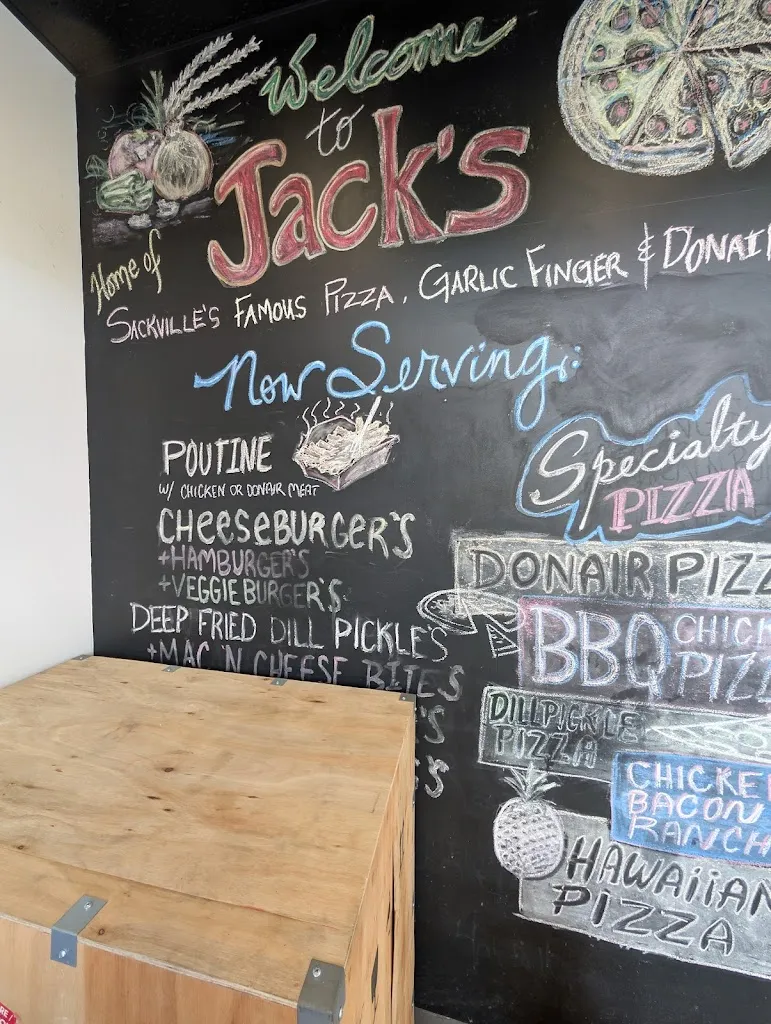 Welcome
to
Jack's
Home of
Sackville's Famous Pizza, Garlic Finger & Donair
Now Serving:
Poutine
w/ Chicken or Donair Meat
Cheeseburger's
+Hamburger's
+Veggie Burger's
Deep Fried Dill Pickle's
+Mac 'N Cheese Bites
's
's
Specialty
Pizza
Donair Pizz
BBQ Chick
Pizz
Dill Pickle
Pizza
Chicke
Bacon
Ranch
Hawaiian
Pizza